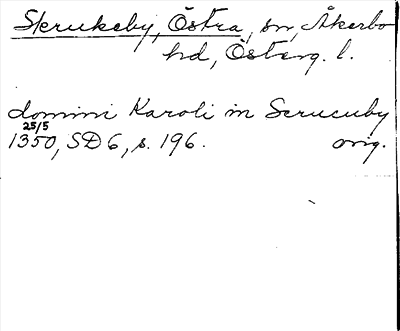 Skrukeby, Östra, sn, Åkerbo
hd, Österg. l.
domini Karoli in Scrucuby
25/5
1350, SD 6, s. 196. orig.